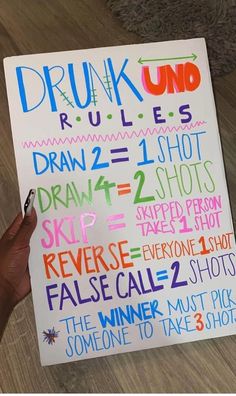 DRUNK UNO
R·U·L·E·S
DRAW 2 = 1 SHOT
DRAW 4 = 2 SHOTS
SKIP = SKIPPED PERSON TAKES 1 SHOT
REVERSE = EVERYONE 1 SHOT
FALSE CALL = 2 SHOTS
THE WINNER MUST PICK
SOMEONE TO TAKE 3 SHOT